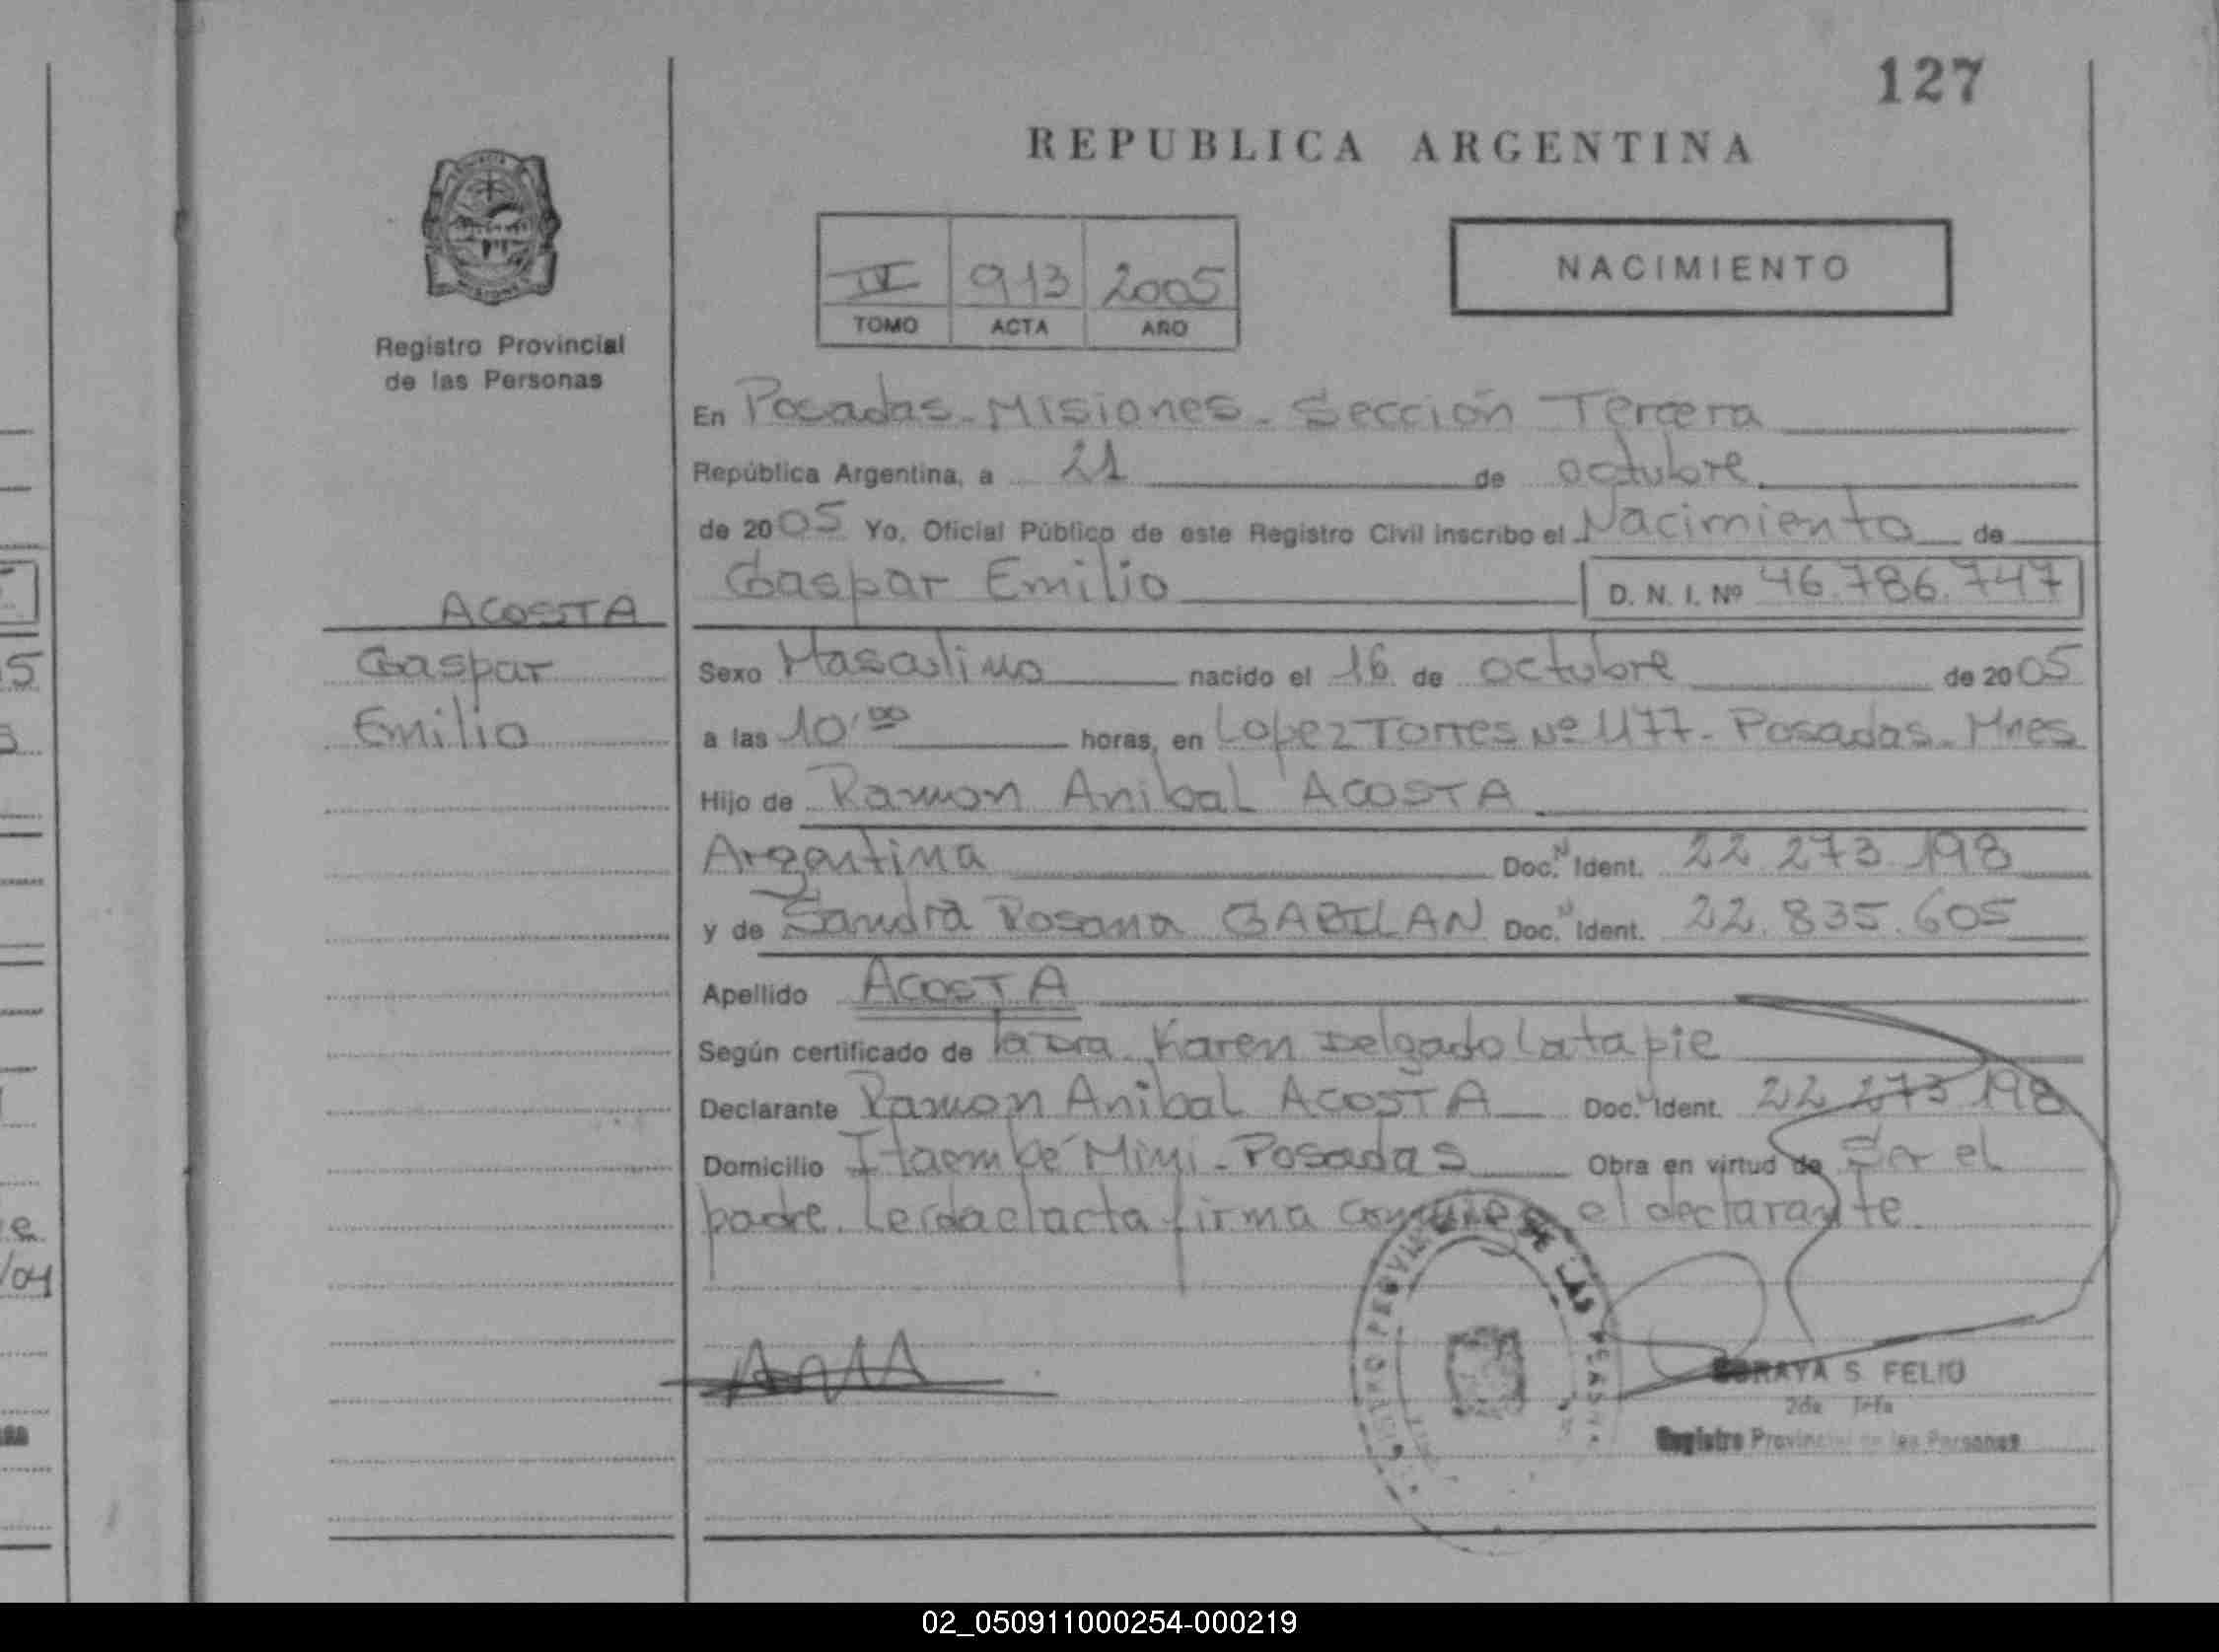 127
REPUBLICA ARGENTINA
IV 913 2005
TOMO ACTA AÑO
NACIMIENTO
Registro Provincial
de las Personas
En Posadas-Misiones-Sección Tercera
República Argentina, a 21 de octubre
de 2005 Yo, Oficial Público de este Registro Civil inscribo el Nacimiento de
Gaspar Emilio D. N. I. Nº 46.786.747
ACOSTA
Gaspar
Emilio
Sexo Masculino nacido el 16 de octubre de 2005
a las 10'00 horas, en Lopez Torres Nº 1177-Posadas-Mnes
Hijo de Ramon Anibal ACOSTA
Argentina Doc. N Ident. 22 273 198
y de Sandra Rosana GABILAN Doc. N Ident. 22.835.605
Apellido ACOSTA
Según certificado de la Dra. Karen Delgado Latapie
Declarante Ramon Anibal ACOSTA Doc. N Ident. 22 273 198
Domicilio Itaembé Mini-Posadas Obra en virtud de Ser el
padre. Leida el acta firma el declarante.
SORAYA S. FELIU
2da Jefa
Registro Provincial de las Personas
5
e
/04
02_050911000254-000219